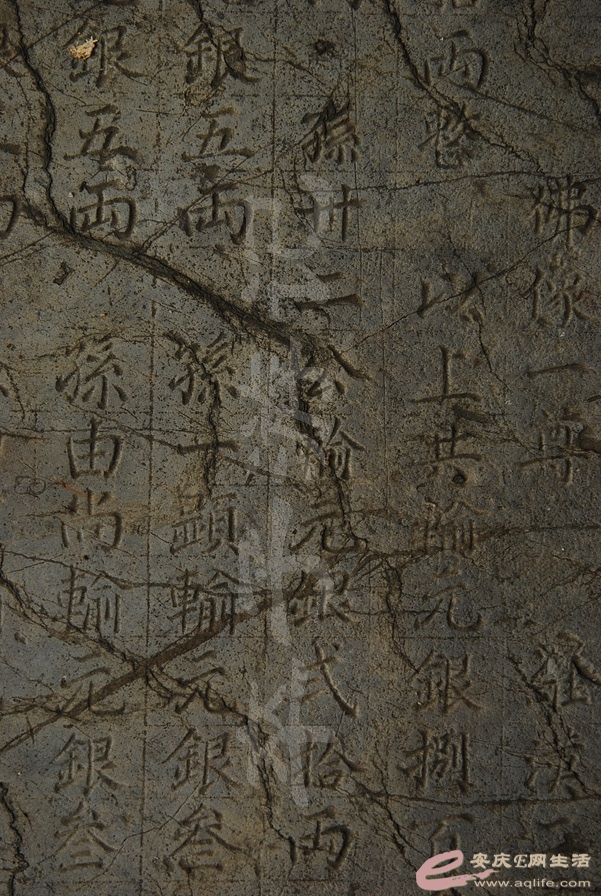 佛像一尊 發
兩整 以上共輸元銀捌
孫卅二公輸元銀弍拾兩
銀五兩 孫顯輸元銀叁
銀五兩 孫由尚輸元銀叁
安庆E网生活
www.aqlife.com